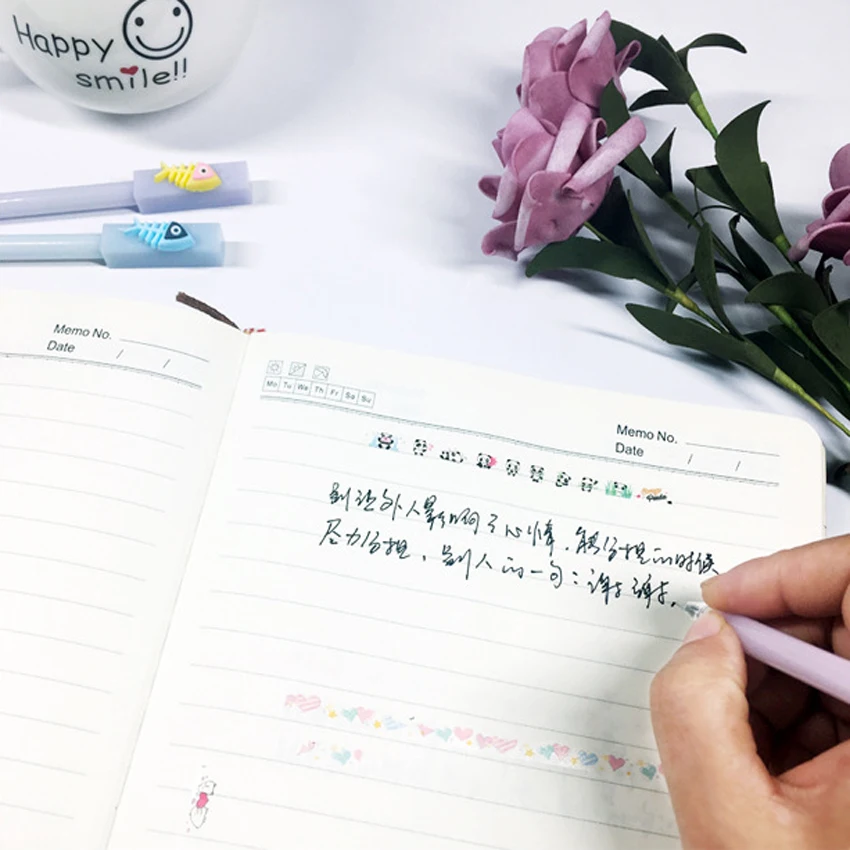 Happy
smile!!
Memo No.
Date / /
Mo Tu We Th Fr Sa Su
Memo No.
Date / /
别让外人影响了心情，能分担的时候
尽力分担，别人的一句：谢谢谢，